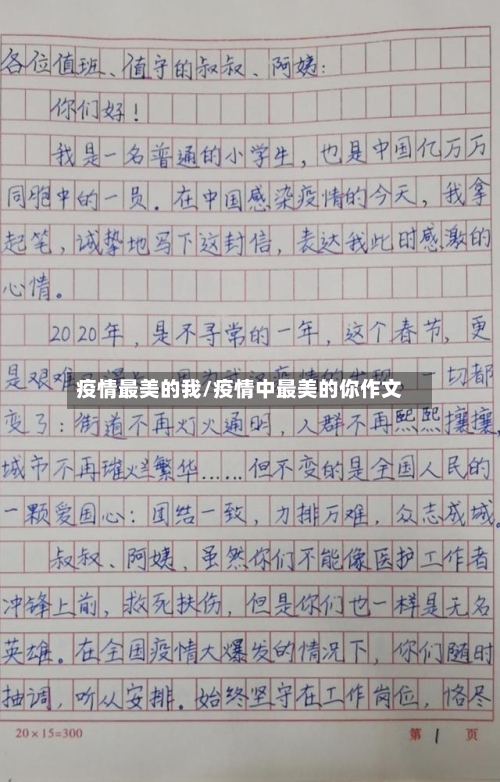 各位值班、值守的叔叔、阿姨:
你们好!
我是一名普通的小学生,也是中国亿万万
同胞中的一员。在中国感染疫情的今天,我拿
起笔,诚挚地写下这封信,表达我此时感激的
心情。
2020年,是不寻常的一年,这个春节,更
是艰难 一切都
疫情最美的我/疫情中最美的你作文
变了:街道不再灯火通明,人群不再熙熙攘攘,
城市不再璀烂繁华……但不变的是全国人民的
一颗爱国心:团结一致,力排万难,众志成城。
叔叔、阿姨,虽然你们不能像医护工作者
冲锋上前,救死扶伤,但是你们也一样是无名
英雄。在全国疫情大爆发的情况下,你们随时
抽调,听从安排。始终坚守在工作岗位,恪尽
20×15=300 第 1 页